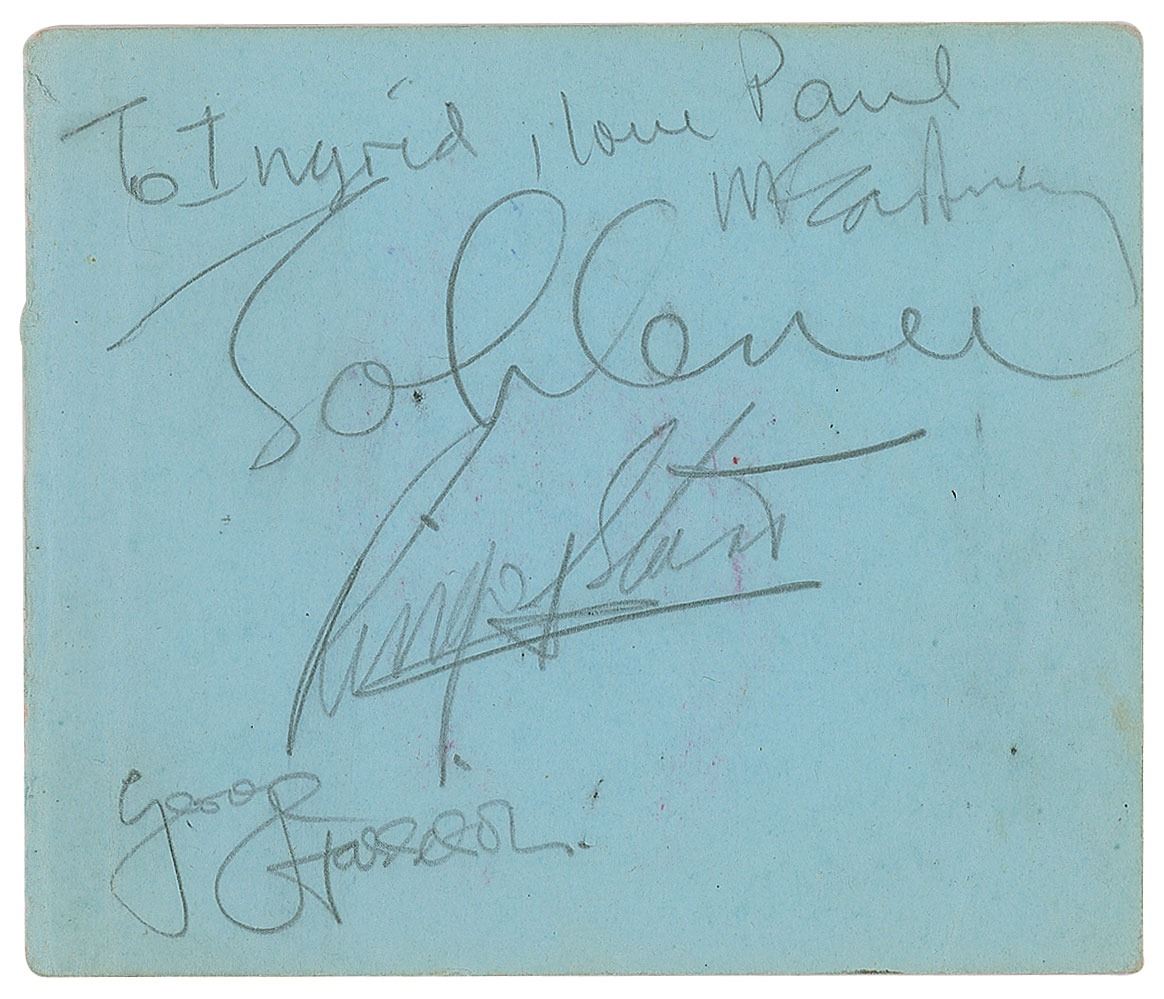 To Ingrid, love Paul
McCartney
John Lennon
Ringo Starr
George Harrison